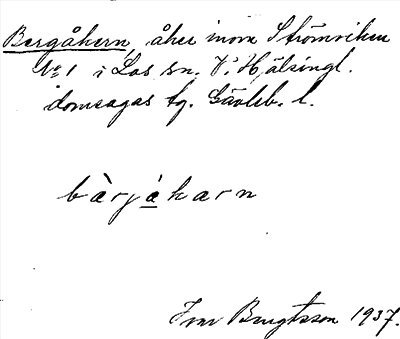 Bergåkern, åker inom Strömviken
No 1 i Los sn. V. Hälsingl.
domsagas tg. Gävleb. l.
bàrjåkarn
Bengtsson 1937.